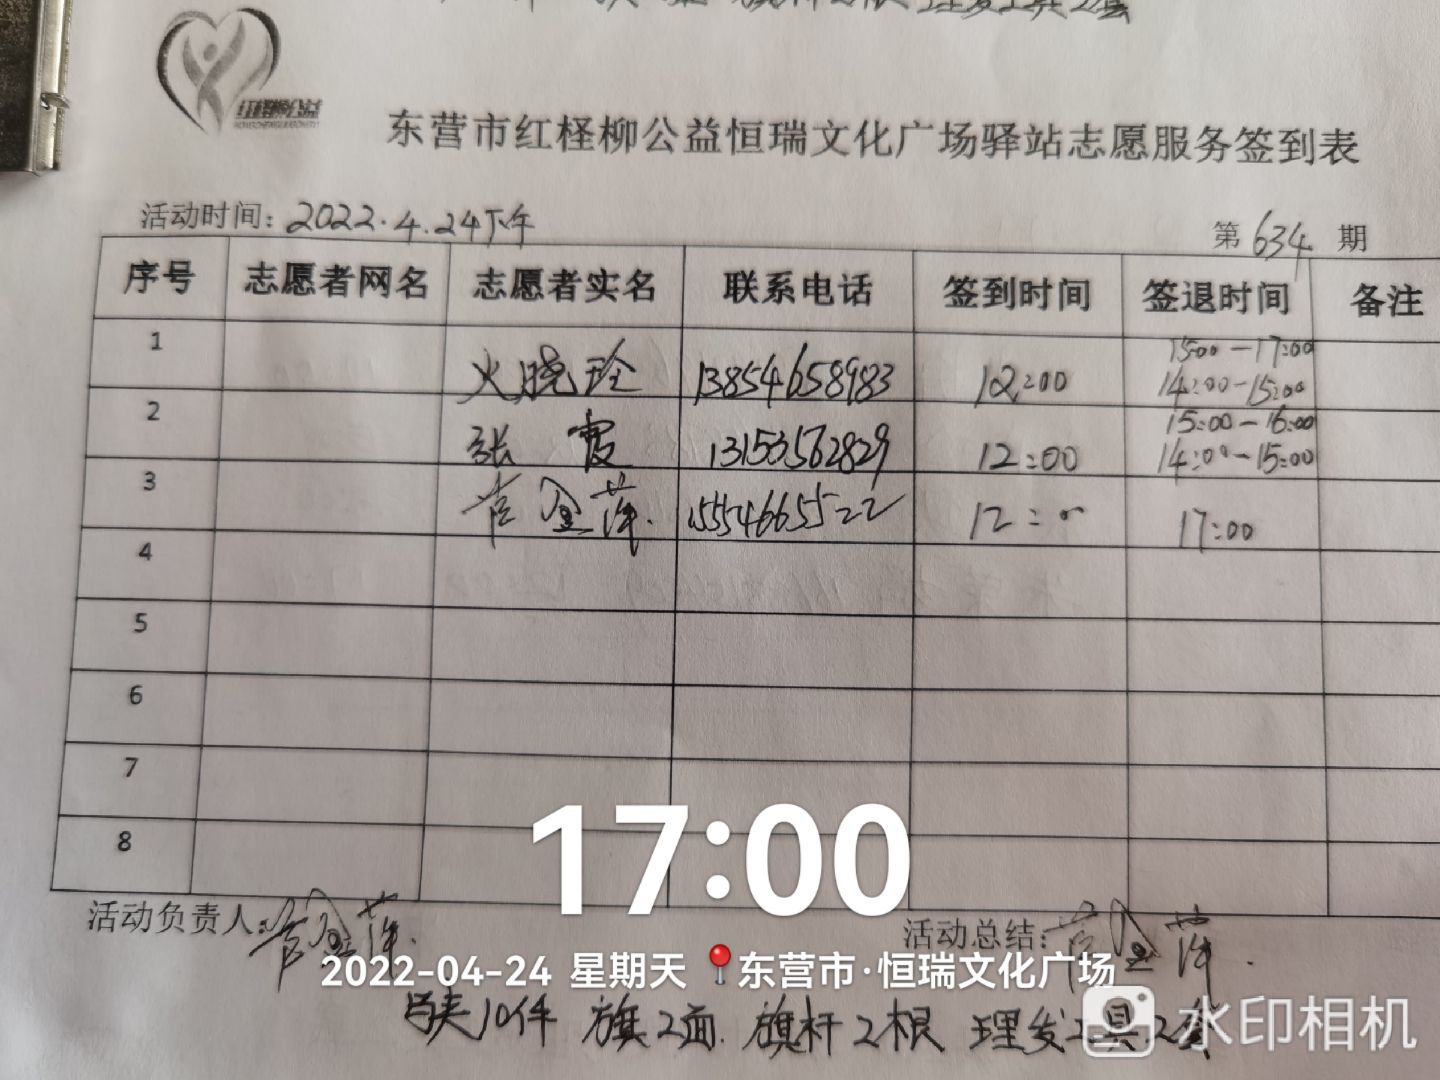 旗杆2根 理发工具2套
红柽柳公益
东营市红柽柳公益恒瑞文化广场驿站志愿服务签到表
活动时间: 2022.4.24下午
第 634 期
序号 志愿者网名 志愿者实名 联系电话 签到时间 签退时间 备注
15:00-17:00
1 火晓玲 13854658983 12:00 14:00-15:00
15:00-16:00
2 张霞 13153562829 12:00 14:00-15:00
3 金萍 15554665522 12:00 17:00
4
5
6
7
8
17:00
活动负责人: 金萍. 活动总结: 金萍.
2022-04-24 星期天 东营市·恒瑞文化广场
马夹10件 旗2面 旗杆2根 理发工具2套
水印相机